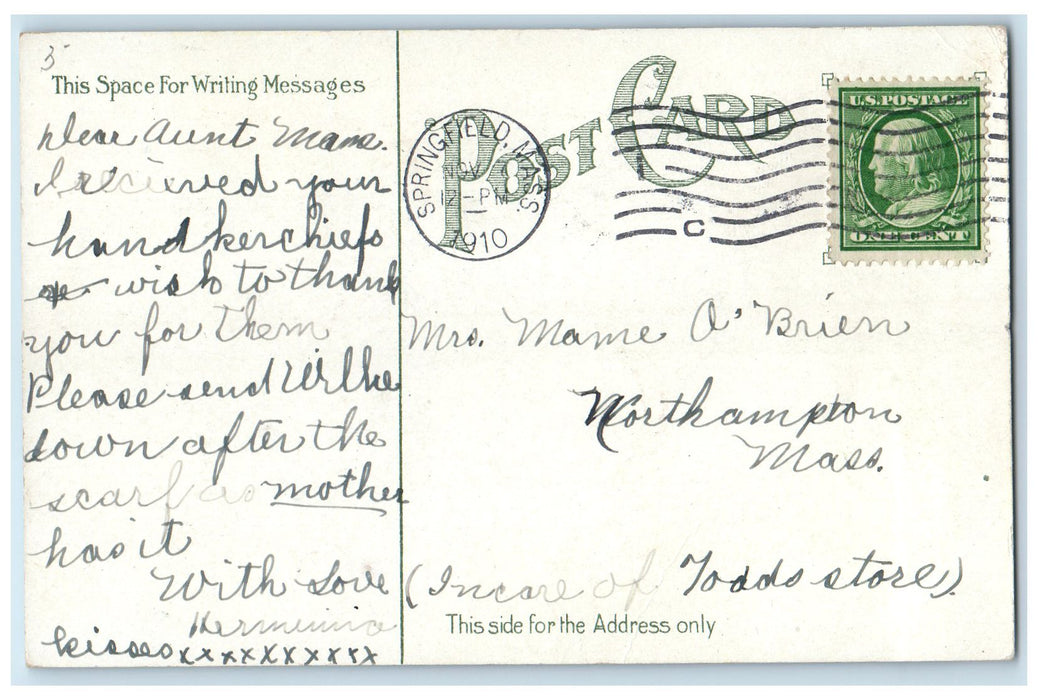 3
This Space For Writing Messages
Dear Aunt Mame.
I recieved your
handkerchiefs
wish to thank
you for them
Please send Willie
down after the
scarf as mother
has it
With Love
Herminia
kisses xxxxxxxxxx
POST CARD
SPRINGFIELD, MASS.
NOV 8
12-PM
1910
C
U.S. POSTAGE
ONE CENT
Mrs. Mame O'Brien
Northampton
Mass.
(Incare of Todds store).
This side for the Address only